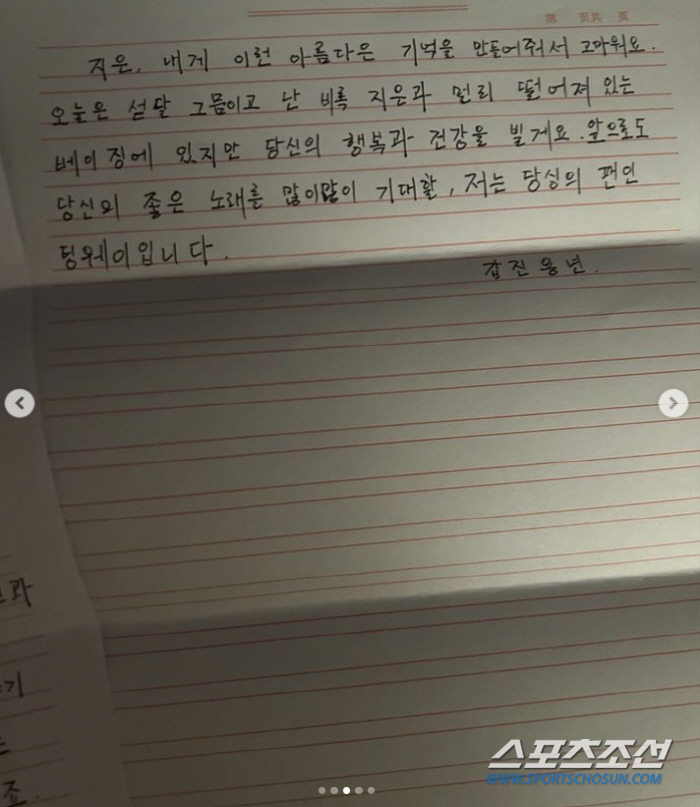 第 页共 页
지은, 내게 이런 아름다운 기억을 만들어줘서 고마워요.
오늘은 섣달 그믐이고 난 비록 지은과 멀리 떨어져 있는
베이징에 있지만 당신의 행복과 건강을 빌게요. 앞으로도
당신의 좋은 노래를 많이많이 기대할, 저는 당신의 팬인
텅웨이입니다.
갑진용년.
과
기
조.
스포츠조선
WWW.SPORTSCHOSUN.COM